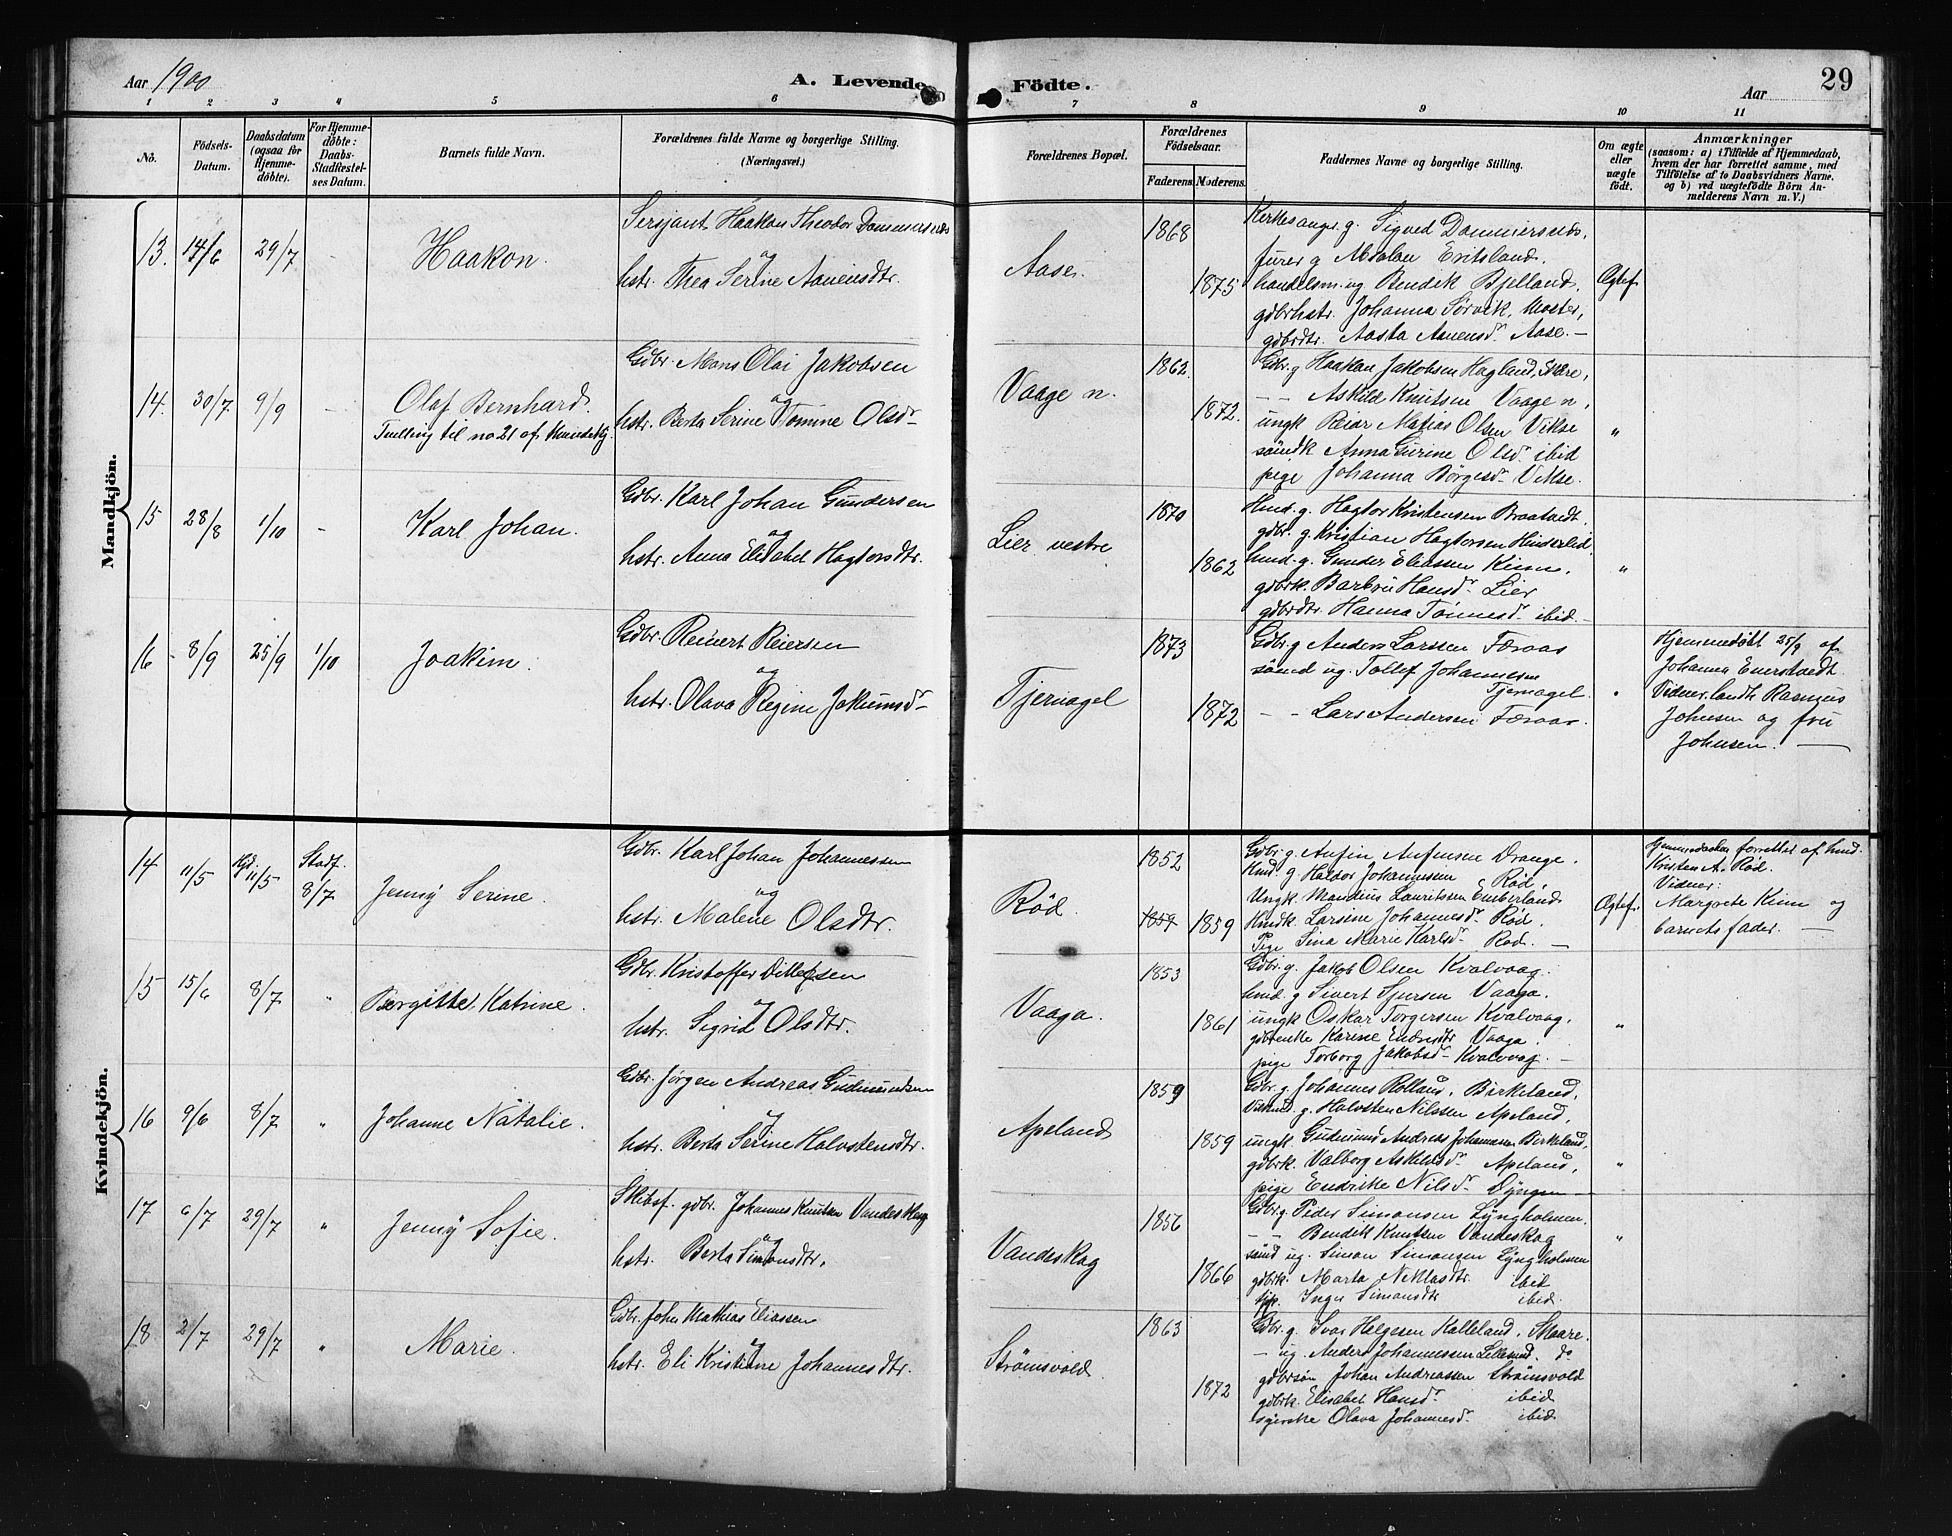 Aar 1900
A. Levende Födte.
Aar
29
1 2 3 4 5 6 7 8 9 10 11
No.
Födsels-Datum.
Daabsdatum (ogsaa for Hjemme-döbte).
For Hjemme-döbte: Daabs-Stadfæstel-ses Datum.
Barnets fulde Navn.
Forældrenes fulde Navne og borgerlige Stilling. (Næringsvei.)
Forældrenes Bopæl.
Forældrenes Födselsaar.
Faderens. Moderens.
Faddernes Navne og borgerlige Stilling.
Om ægte eller uægte födt.
Anmærkninger
(saasom: a) i Tilfælde af Hjemmedaab, hvem der har forrettet samme, med Tilföielse af to Daabsvidners Navne, og b) ved uægtefödte Börn An-melderens Navn m. V.)
Mandkjön.
13. 14/6 29/7 - Haakon.
Sersjant Haakon Theodor Dommersnes
og
hstr. Thea Serine Aanensdtr.
Aase.
1868
1875
Kirkesanger g. Sigved Dommersnes,
furer g Abdalan Eritsland,
handelsm. ug Bendik Bjelland,
gdbrhstr. Johanna Sørvik, Moster,
gdbrdtr. Aasta Aanensdr Aase. -
Ægtef.
14. 30/7 9/9 - Olaf Bernhard.
Tvilling til no 21 af Kvindekj.
Gdbr. Mons Olai Jakobsen
og
hstr. Berta Serine Tomine Olsdr
Vaage n.
1862.
1872.
Gdbr. g Haakon Jakobsen Hagland, Skaare,
- - Askild Knutsen Vaage n,
ungk Reiar Matias Olsen Vikse
sømdk Anna Gurine Olsdr ibid
pige Johanna Børgesdr Vikse.
"
15 28/8 1/10 - Karl Johan.
Gdbr. Karl Johan Gundersen
og
hstr. Anna Elisabet Hagtorsdtr.
Lier vestre
1870
1862
Hmd. g. Hagtor Kristensen Braatvedt.
gdbr. g. Kristian Hagtorsen Hinderlid.
hmd. g. Gunder Eliassen Kinn,
gdbrk. Barbru Hansdr Lier
gdbrdtr. Hanna Tønnesdr ibid -
"
16 8/9 25/9 1/10 Joakim.
Gdbr. Reinert Reiersen
og
hstr. Olava Regine Jakumsdr
Tjernagel
1873
1872
Gdbr. g Anders Larssen Færaas
sømd ug. Tollef Johannesen
Tjernagel.
- - Lars Andersen Færaas.
"
Hjemmedøbt 25/9 af
Johanna Enerstvedt
Vidner. landh. Rasmus
Johnsen og fru
Johnsen. -
Kvindekjön.
14 11/5 Hjd. 11/5 Stadf. 8/7 Jenny Serine.
Gdbr. Karl Johan Johannessen
og
hstr. Malene Olsdtr.
Rød.
1852
1859 1859
Gdbr. g. Anfin Anfinsen Drange.
Hmd g. Haldor Johannesen Rød,
Ungk. Mandius Lauritsen Emberland
Hmdk. Larsine Johannesdr Rød.
Pige Sina Marie Karlsdr Rød. -
Ægtef.
Hjemmedaaben forrettet af hmd.
Kristen A. Rød.
Vidner:
Margrete Kinn og
barnets fader. -
15 15/6 8/7 " Bergitte Katrine.
Gdbr. Kristoffer Ditlefsen
og
hstr. Sigrid Olsdtr.
Vaaga.
1853
1861
Gdbr. g. Jakob Olsen Kvalvaag.
hmd. g Sivert Sjursen Vaaga.
ungk Oskar Torgersen Kvalvaag,
gdbrenke Karine Endresdtr Vaaga.
pige Torborg Jakobsdr Kvalvaag. -
"
16 9/6 8/7 " Johanne Natalie.
Gdbr. Jørgen Andreas Gudmundsen
og
hstr. Berta Serine Halvstensdtr.
Apeland
1859
1859
Gdbr. g Johannes Rolland, Birkeland,
g. Halvsten Nilssen Apeland,
ungk. Gudmund Andreas Johannesen Birkeland,
gdbrk. Valborg Askildsdr Apeland,
pige Endrikke Nilsdr Dyngen -
"
17 6/7 29/7 " Jenny Sofie.
Skibsf. gdbr. Johannes Knutsen Vandeskog
og
hstr. Berta Simonsdtr.
Vandeskog
1856
1866
Gdbr. g. Peder Simonsen Lyngholmen.
- - Bendik Knutsen Vandeskog
sømd ug. Simon Simonsen Lyngholmen
gdbrk. Marta Niklasdtr. ibid
tjp. Inger Simonsdtr ibid.
"
18 2/7 29/7 " Marie.
Gdbr. John Mathias Eliassen
og
hstr. Eli Kristine Johannesdtr.
Strømsvold.
1863
1872
Gdbr. g. Ivar Helgesen Kalleland, Skaare.
- ug. Anders Johannessen Lillesund. do
gdbrsøn Johan Andreassen Strømsvold
gdbrk. Elisabet Hansdr ibid
Olava Johannesdr ibid